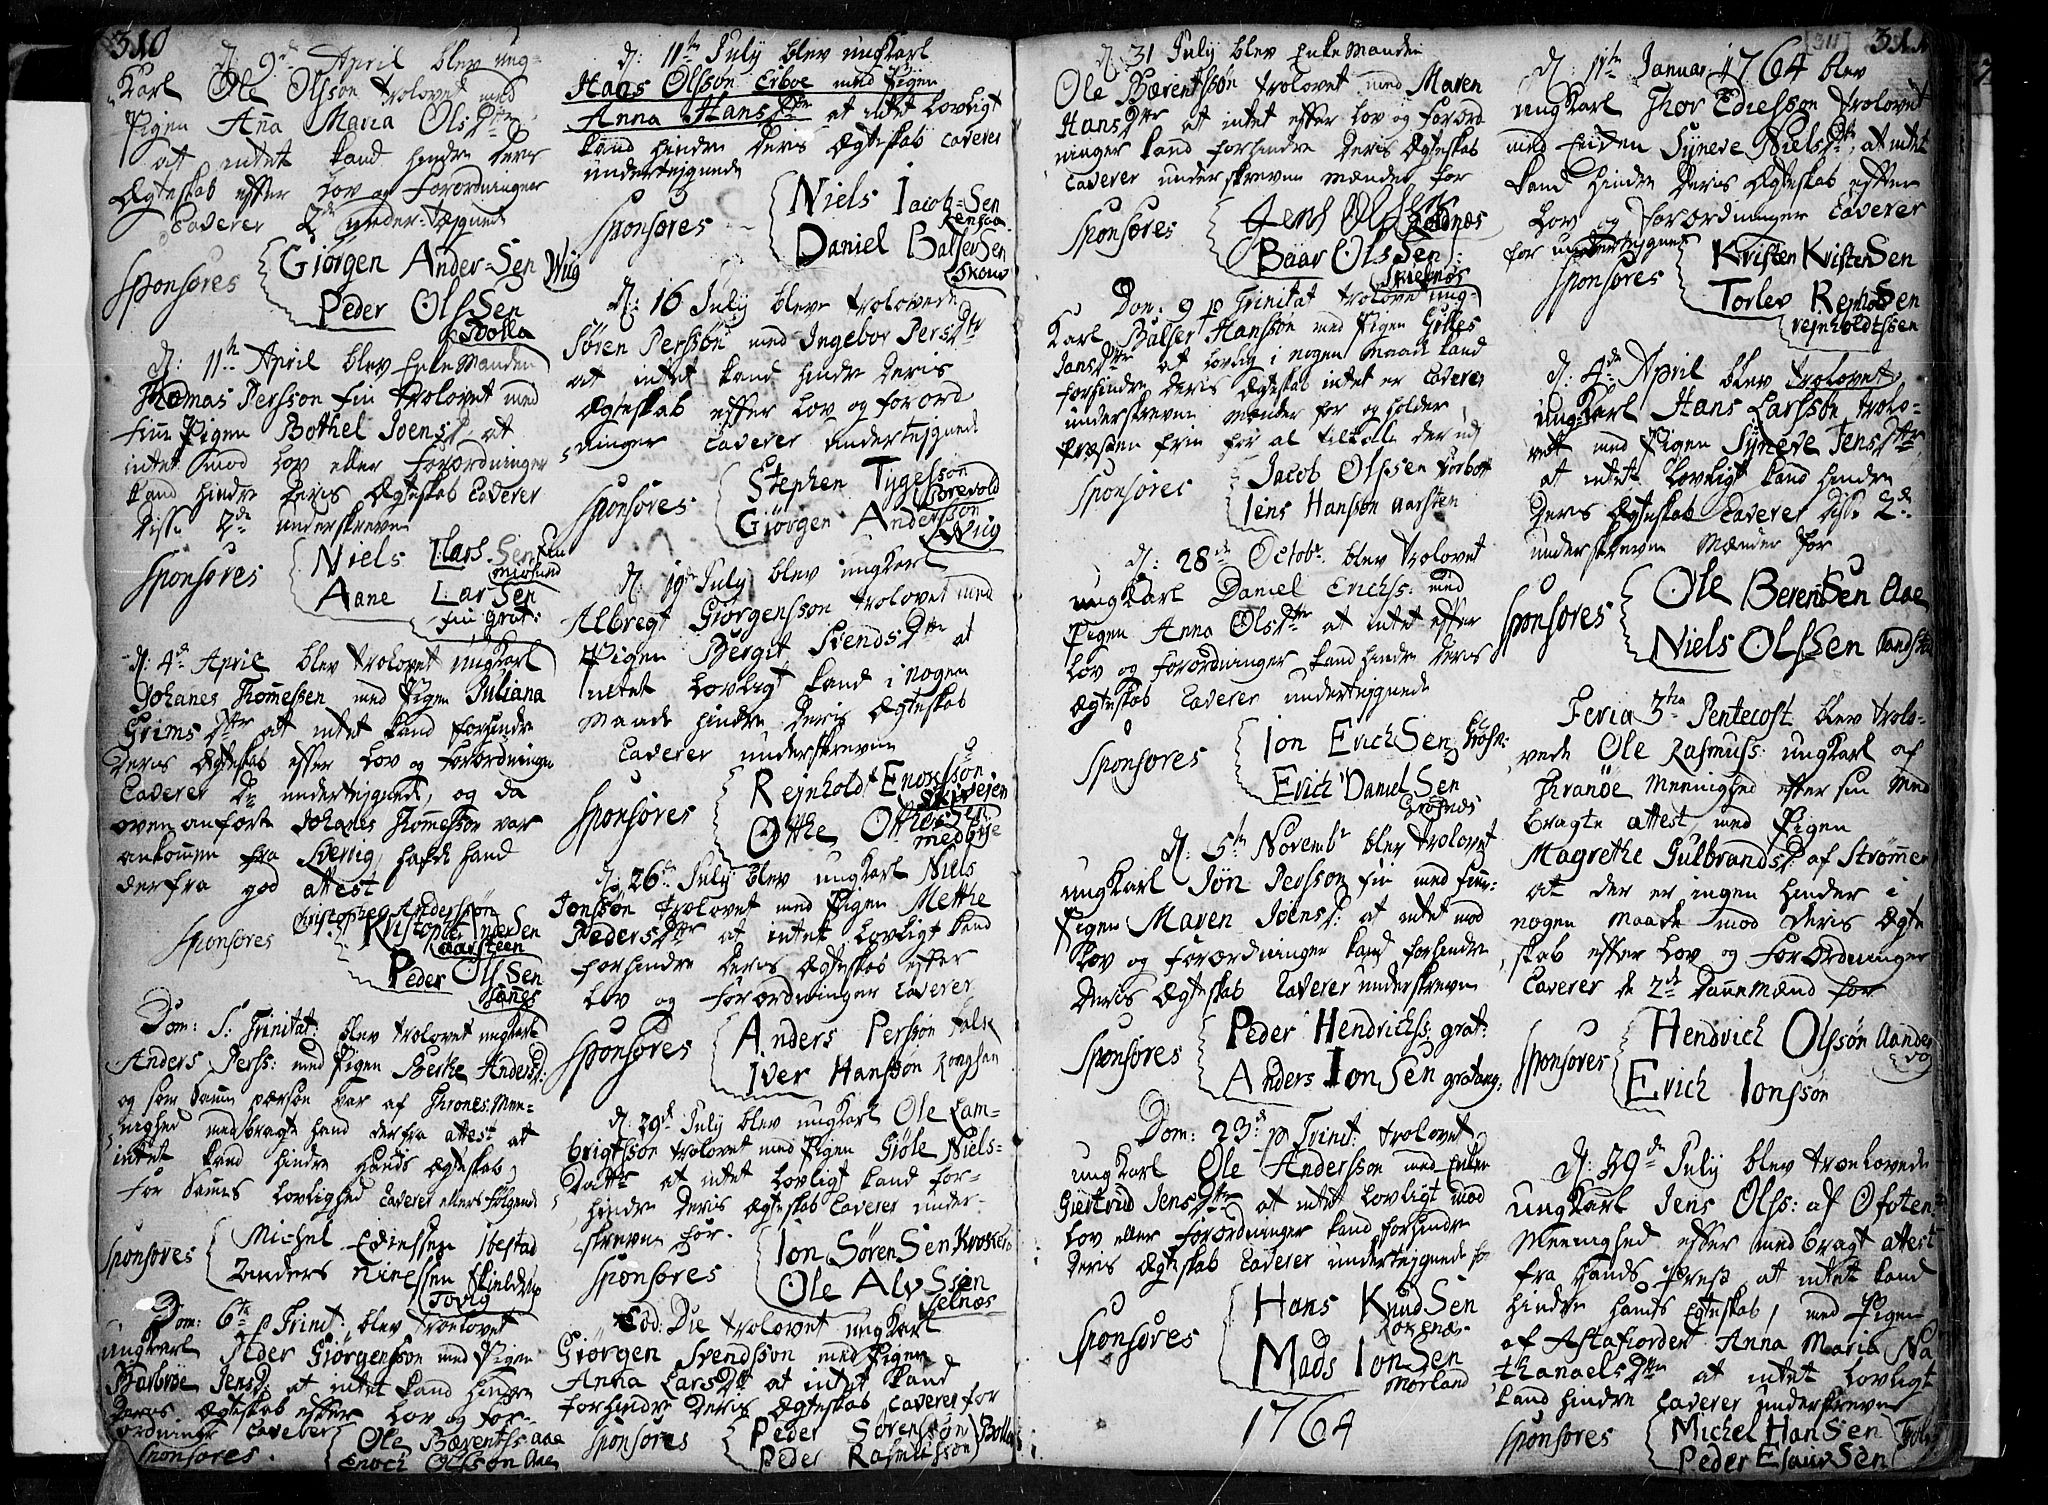 310
d. 9de April blev ung=
Karl Ole Olsson trolovet med
Pigen Anna Maria OlsDtr
at intet kand hindre deres
Ægteskab efter Lov og Forordninger
Caverer 2de under-tægnede
Sponsores
Giørgen Ander=Sen Wiig
Peder OlsSen
Bolla
d: 11th April blev Enke Manden
Thomas Persson Fin trolovet med
Finn Pigen Bothel JoensD. at
intet mod Lov eller Forordninger
kand hindre deres Ægteskab Caverer
disse 2de underskrevne
Sponsores
Niels Lars-Sen Fin
Aane LarSen
Fin grat:
d: 4de April blev trolovet ungKarl
Johanes Thomessen med Pigen Juliana
GrimsDtr at intet kand forhindre
Deres Ægteskab efter Lov og Forordninger
Caverer De undertegnede, og da
ovenanførte Johanes Thomesson var
ankommen fra Sverrig, hafde hand
derfra god attest
Sponsores
Christopher Anderssøn
Kristopher
Aarsteen
Peder OlsSen
Hanes
Dom: S: Trinitat: blev trolovet ungKarl
Anders Perss: med Pigen Berthe AndersD:
og som samme person var af Thrones Men=
nighed medbragte hand derfra attest at
intet kand hindre hands Ægteskab
for dannes Lovlighed Caverer ellers følgende
Sponsores
Michel Ediessen Ibestad
Zanders Ninessen Skieldrup
Tovig
Dom: 6te p Trinit: blev troelovet
ungkarl Peder Giørgensson med Pigen
Barbroe JensD. at intet kand hindre
Deres Ægteskab efter Lov og For=
ordninger Caverer
Sponsores
Ole Bærentss Aae
Enoch Olsson Aae
d: 11te July blev ungKarl
Hans Olsson Erboe med Pigen
Anna HansDtr at intet Lovligt
kand hindre deres Ægteskab caverer
undertejgnede
Sponsores
Niels Jacob=Sen
Daniel BalserSen
Skow
d: 16 July bleve trolovede
Søren Persson med Ingebor PersDtr
at intet kand hindre Deris
Ægteskab efter Lov og Forord
dninger Caverer undertejgnede
Sponsores
Stephen Tygesson
Sørevold
Giørgen Andersson
Wiig
d: 19de July blev ungKarl
Albregt Giørgensson trolovet med
Pigen Bergit SvendsDtr at
intet Lovligt kand i nogen
maade hindre Deris Ægteskab
Caverer underskrevne
Sponsores
Rejnhold Enoxssøn
Otthe
medbye
d: 26de July blev ungKarl Niels
Jonsson trolovet med Pigen Metthe
PedersDtr at intet Lovligt kand
forhindre Deris Ægteskab efter
Lov og Forordninger Caverer
Sponsores
Anders Perssøn
Iver Hanssøn
d: 29de July blev ungKarl Ole Lam=
brigtsson trolovet med Pigen Giøle Niels=
Datter at intet Lovligt kand for=
hindre Deris Ægteskab Caverer under=
skrevne for.
Sponsores
Ion SørenSen
Ole AlvSsøn
Selnæs
Eod: Die trolovet ungKarl
Giørgen Svendsson med Pigen
Anna LarsDtr at intet kand
forhindre Deris Ægteskab caverer for
Sponsores
Peder Sørensøn
Peder Rasmussøn
Bolla
311
d. 31 July blev Enke Manden
Ole Bærentsson trolovet med Maren
HansDtr at intet efter Lov og Forord
ninger kand forhindre Deris Ægteskab
Caverer underskrevne mænder for
Sponsores
Jens Olsen
Baar OlsSen
Dom: 9 p Trinitat trolovet ung=
Karl Balser Hansson med Pigen Gølles
JansDtr at Lovlig i nogen maade kand
forhindre Deris Ægteskab intet er Caverer
underskrevne mænder for og holder
Præsten frie for al tiltale der ud
Sponsores
Jacob Olssen
Iens Hanssøn Aarsten
d: 28de Octobr. blev trolovet
ungKarl Daniel Erichss: med
Pigen Anna OlsDtr at intet efter
Lov og Forordninger kand hindre Deris
Ægteskab Caverer undertejgnede
Sponsores
Ion ErichSen
Erich DanielSen
Grosnæs
d: 5te Novembr blev trolovet
ungKarl Jøn Persson Fin med Finn=
Pigen Maren JoensD: at intet mod
Lov og Forordninger kand forhindre
Deris Ægteskab Caverer underskrevne
Sponsores
Peder Hendrichss: grat:
Anders IonSen gratang:
Dom: 23de p Trinit: trolovet
ungKarl Ole Andersson med Enken
Giertrud JensDtr at intet Lovligt mod
Lov eller Forordninger kand forhindre
Deris Ægteskab Caverer undertejgnede for
Sponsores
Hans KnudSen
Mads IonSen
Mørland
1764
d: 11te Januar: 1764 blev
ungKarl Thor Ediesson trolovet
med Enken Syneve NielsD. at intet
kand hindre Deris Ægteskab efter
Lov og Forordninger Caverer
for undertejgnet
Sponsores
Kristen KristenSen
Torlev
rejnholdtssen
d: 4de April blev trolovet
UngKarl Hans Larsson trolo=
vet med Pigen Syneve JensDtr
at intet Lovligt kand hindre
Deris Ægteskab Caverer disse 2de
underskrevne Mænder for
Sponsores
Ole BerentSen Aae
Niels OlsSen
Feria 3tia Pentecost blev trolo=
vede Ole Rasmuss: ungKarl af
Thranøe Meenighed efter sin Med
bragte attest, med Pigen
Magrethe GulbrandsD. af Strømmen
at der er ingen hinder i
nogen maade mod Deris Ægte
skab efter Lov og Forordninger
Caverer de 2de Dannemænd for
Sponsores
Hendrich Olssøn Aander
vog
Erich Ionssøn
d: 29de July blev troelovede
ungKarl Jens Olss: af Ofoten
Meenighed efter medbragt attest
fra Hands Præst at intet kand
hindre hands Egteskab, med Pigen
af Astafiordet Anna Maria Na
thanaelsDtr at intet Lovligt
kand hindre Caverer underskrevne
Sponsores
Michel HanSen
Peder EsaiæSen